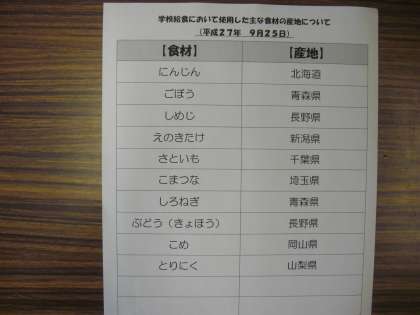 学校給食において使用した主な食材の産地について
（平成２７年　９月２５日）
【食材】　【産地】
にんじん　北海道
ごぼう　青森県
しめじ　長野県
えのきたけ　新潟県
さといも　千葉県
こまつな　埼玉県
しろねぎ　青森県
ぶどう（きょほう）　長野県
こめ　岡山県
とりにく　山梨県